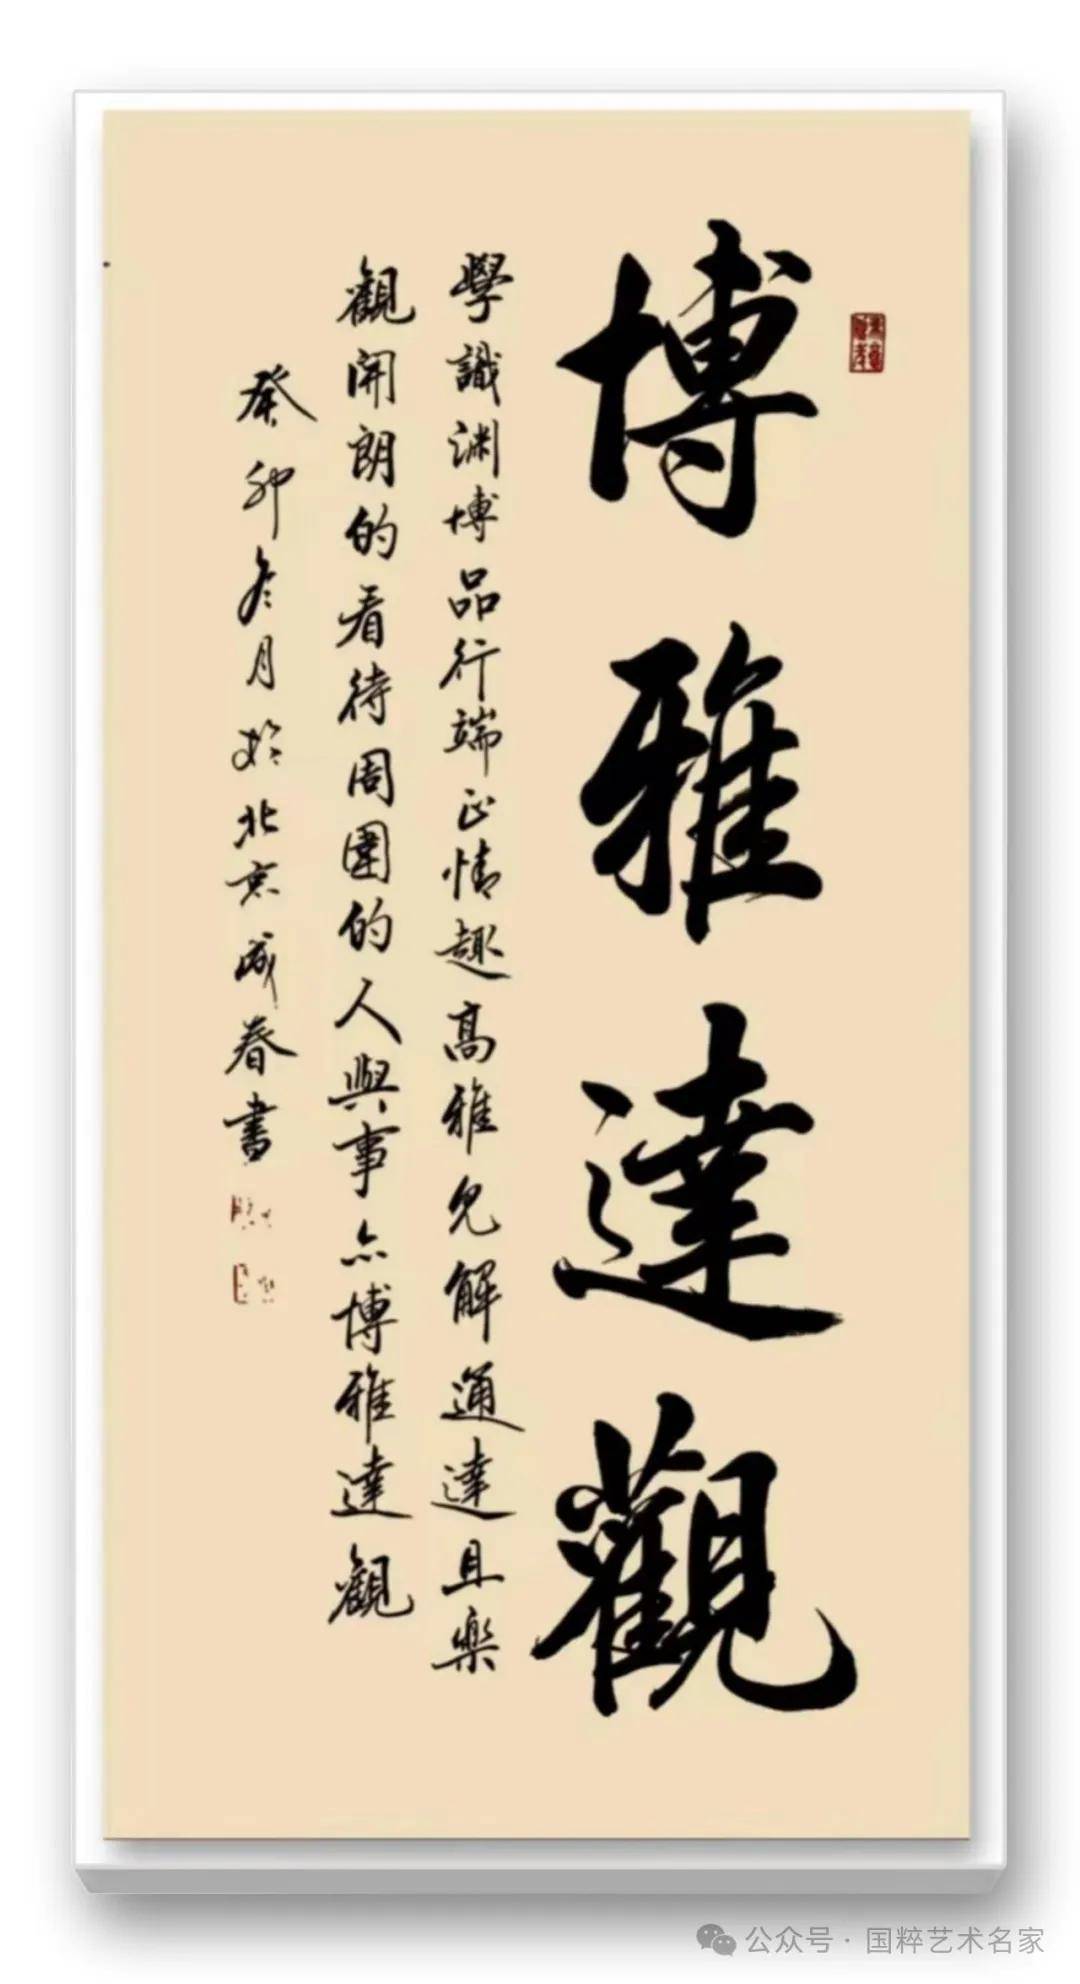 博雅達觀
學識淵博品行端正情趣高雅見解通達且樂
觀開朗的看待周圍的人與事亦博雅達觀
癸卯冬月於北京成春書
公众号 · 国粹艺术名家